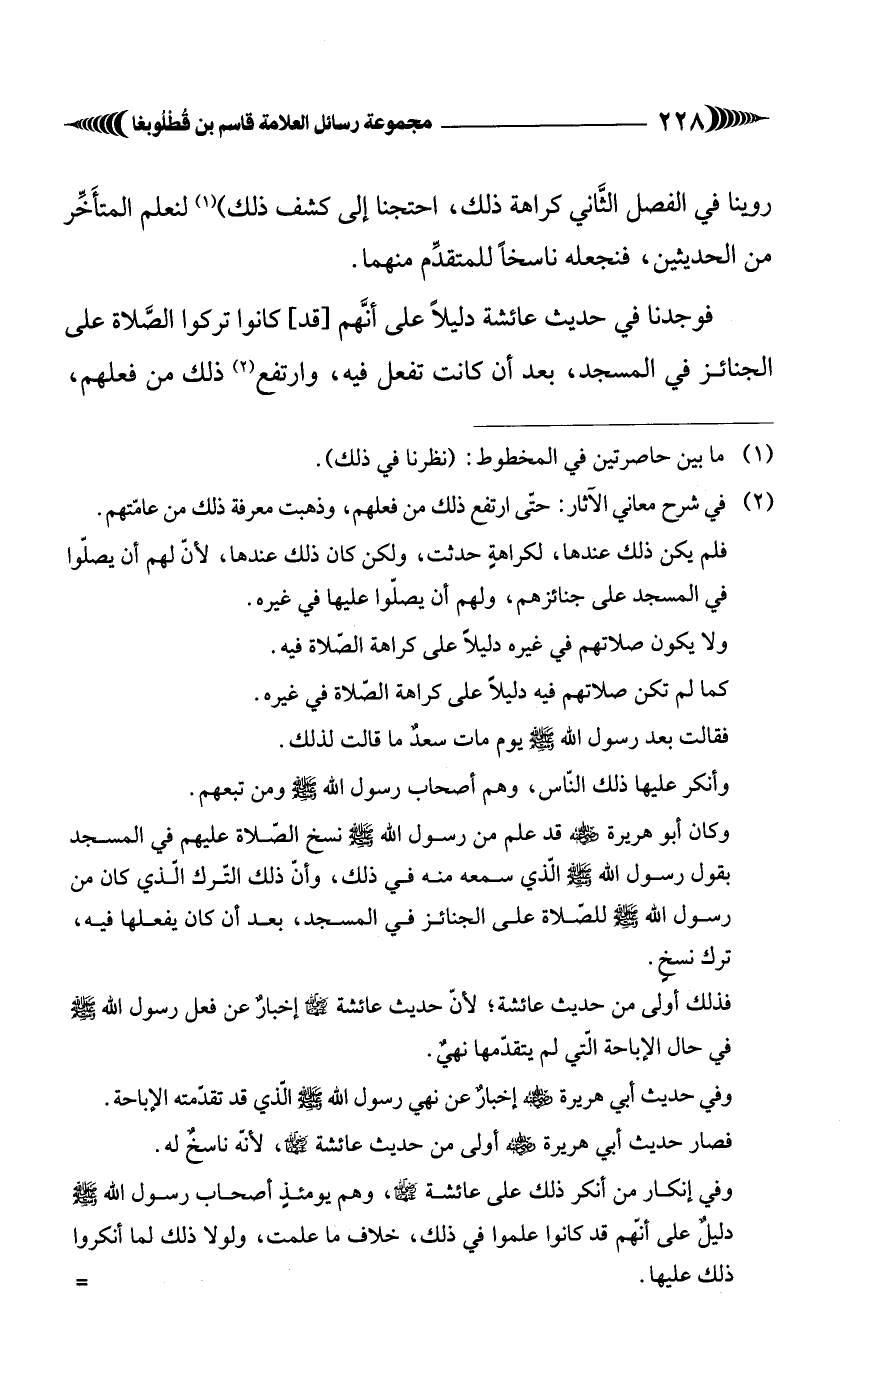 ٢٢٨ مجموعة رسائل العلامة قاسم بن قُطْلُوبغا
روينا في الفصل الثَّاني كراهة ذلك، احتجنا إلى كشف ذلك)(١) لنعلم المتأَخِّر
من الحديثين، فنجعله ناسخاً للمتقدِّم منهما.
فوجدنا في حديث عائشة دليلاً على أنَّهم [قد] كانوا تركوا الصَّلاة على
الجنائـز في المسجد، بعد أن كانت تفعل فيه، وارتفع(٢) ذلك من فعلهم،
(١) ما بين حاصرتين في المخطوط: (نظرنا في ذلك).
(٢) في شرح معاني الآثار: حتّى ارتفع ذلك من فعلهم، وذهبت معرفة ذلك من عامّتهم.
فلم يكن ذلك عندها، لكراهةٍ حدثت، ولكن كان ذلك عندها، لأنّ لهم أن يصلّوا
في المسجد على جنائزهم، ولهم أن يصلّوا عليها في غيره.
ولا يكون صلاتهم في غيره دليلاً على كراهة الصّلاة فيه.
كما لم تكن صلاتهم فيه دليلاً على كراهة الصّلاة في غيره.
فقالت بعد رسول الله ﷺ يوم مات سعدٌ ما قالت لذلك.
وأنكر عليها ذلك النّاس، وهم أصحاب رسول الله ﷺ ومن تبعهم.
وكان أبو هريرة رضي الله عنه قد علم من رسول الله ﷺ نسخ الصّـلاة عليهم في المسـجد
بقول رسـول الله ﷺ الّذي سـمعه منـه فـي ذلك، وأنّ ذلك التّرك الّـذي كان من
رسـول الله ﷺ للصّـلاة علـى الجنائـز فـي المسـجد، بعـد أن كان يفعـلها فيـه،
ترك نسخٍ.
فذلك أولى من حديث عائشة؛ لأنّ حديث عائشة رضي الله عنها إخبارٌ عن فعل رسول الله ﷺ
في حال الإباحة الّتي لم يتقدّمها نهيٌ.
وفي حديث أبي هريرة رضي الله عنه إخبارٌ عن نهي رسول الله ﷺ الّذي قد تقدّمته الإباحة.
فصار حديث أبي هريرة رضي الله عنه أولى من حديث عائشة رضي الله عنها، لأنّه ناسخٌ له.
وفي إنكـار من أنكر ذلك على عائشـة رضي الله عنها، وهم يومئـذٍ أصحـاب رسـول الله ﷺ
دليلٌ على أنّهم قد كانوا علموا في ذلك، خلاف ما علمت، ولولا ذلك لما أنكروا
ذلك عليها. =